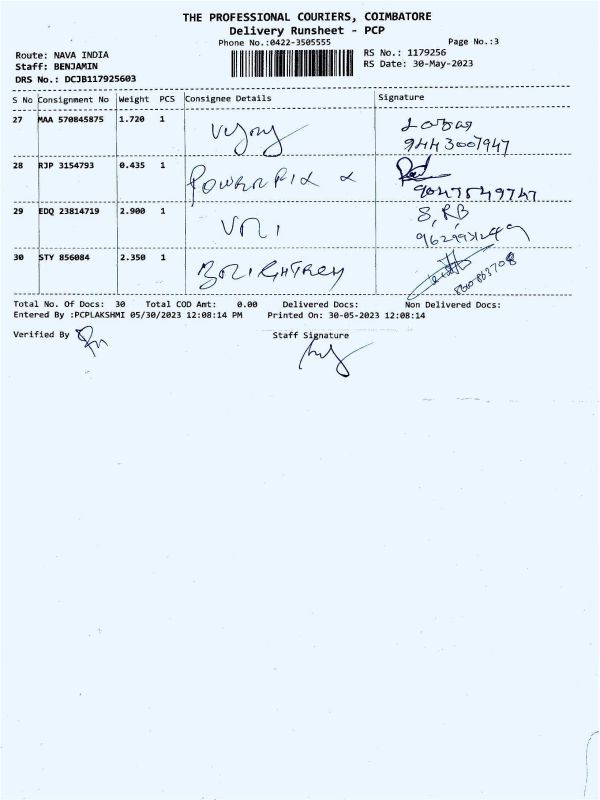 THE PROFESSIONAL COURIERS, COIMBATORE
Delivery Runsheet - PCP
Phone No.:0422-3505555
Page No.:3
Route: NAVA INDIA
RS No.: 1179256
Staff: BENJAMIN
RS Date: 30-May-2023
DRS No.: DCJB117925603
S No Consignment No Weight PCS Consignee Details Signature
27 MAA 570845875 1.720 1
9443007947
28 RJP 3154793 0.435 1
9047549747
29 EDQ 23814719 2.900 1
30 STY 856084 2.350 1
Total No. Of Docs: 30 Total COD Amt: 0.00 Delivered Docs: Non Delivered Docs:
Entered By :PCPLAKSHMI 05/30/2023 12:08:14 PM Printed On: 30-05-2023 12:08:14
Verified By
Staff Signature